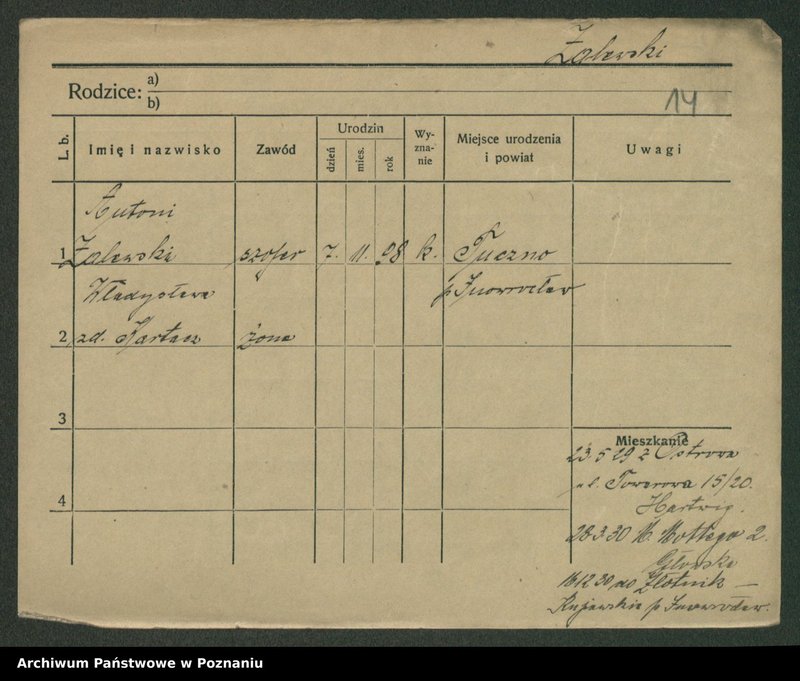 Zalewski
Rodzice: a)
b)
14
L. b. Imię i nazwisko Zawód Urodzin dzień mies. rok Wy-zna-nie Miejsce urodzenia i powiat Uwagi
Antoni
1 Zalewski szofer 7. 11. 98 k. Tuczno
Władysława p. Inowrocław
2 zd. Kartacz żona
3
Mieszkanie
23.5 29 z Ostrowa
4 ul. Towarowa 15/20.
Hartwig.
28.3.30 M. Mottego 2.
16 12 30 do Złotnik —
Kujawskie p. Inowrocław.
Archiwum Państwowe w Poznaniu